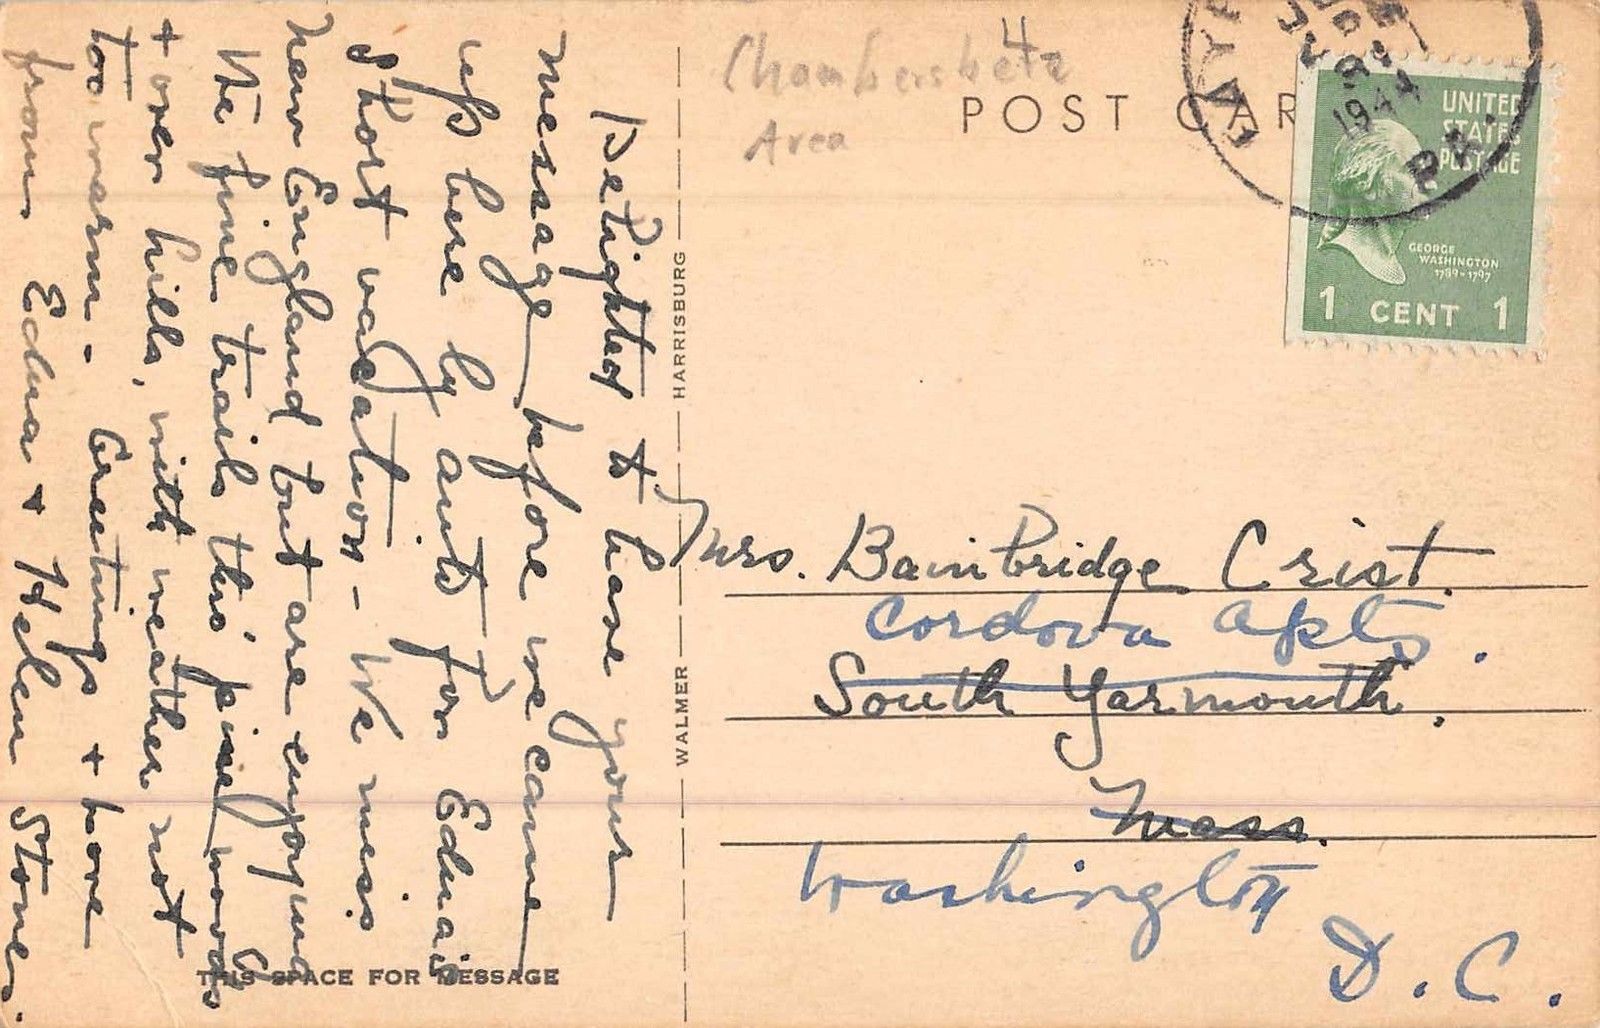 Delighted to have your
message before we came
up here by auto for Edna's
short vacation - We miss
New England but are enjoying
the fine trails thro' pine woods
+ over hills, with weather not
too warm. Greetings + love
from Edna + Helen Stone.
THIS SPACE FOR MESSAGE
WALMER HARRISBURG
Chambersbe
Area
POST CAR
1944
PA.
UNITED
STATES
POSTAGE
GEORGE
WASHINGTON
1789-1797
1 CENT 1
Mrs. Bainbridge Crist.
Cordova Apts.
South Yarmouth.
Mass.
Washington
D.C.